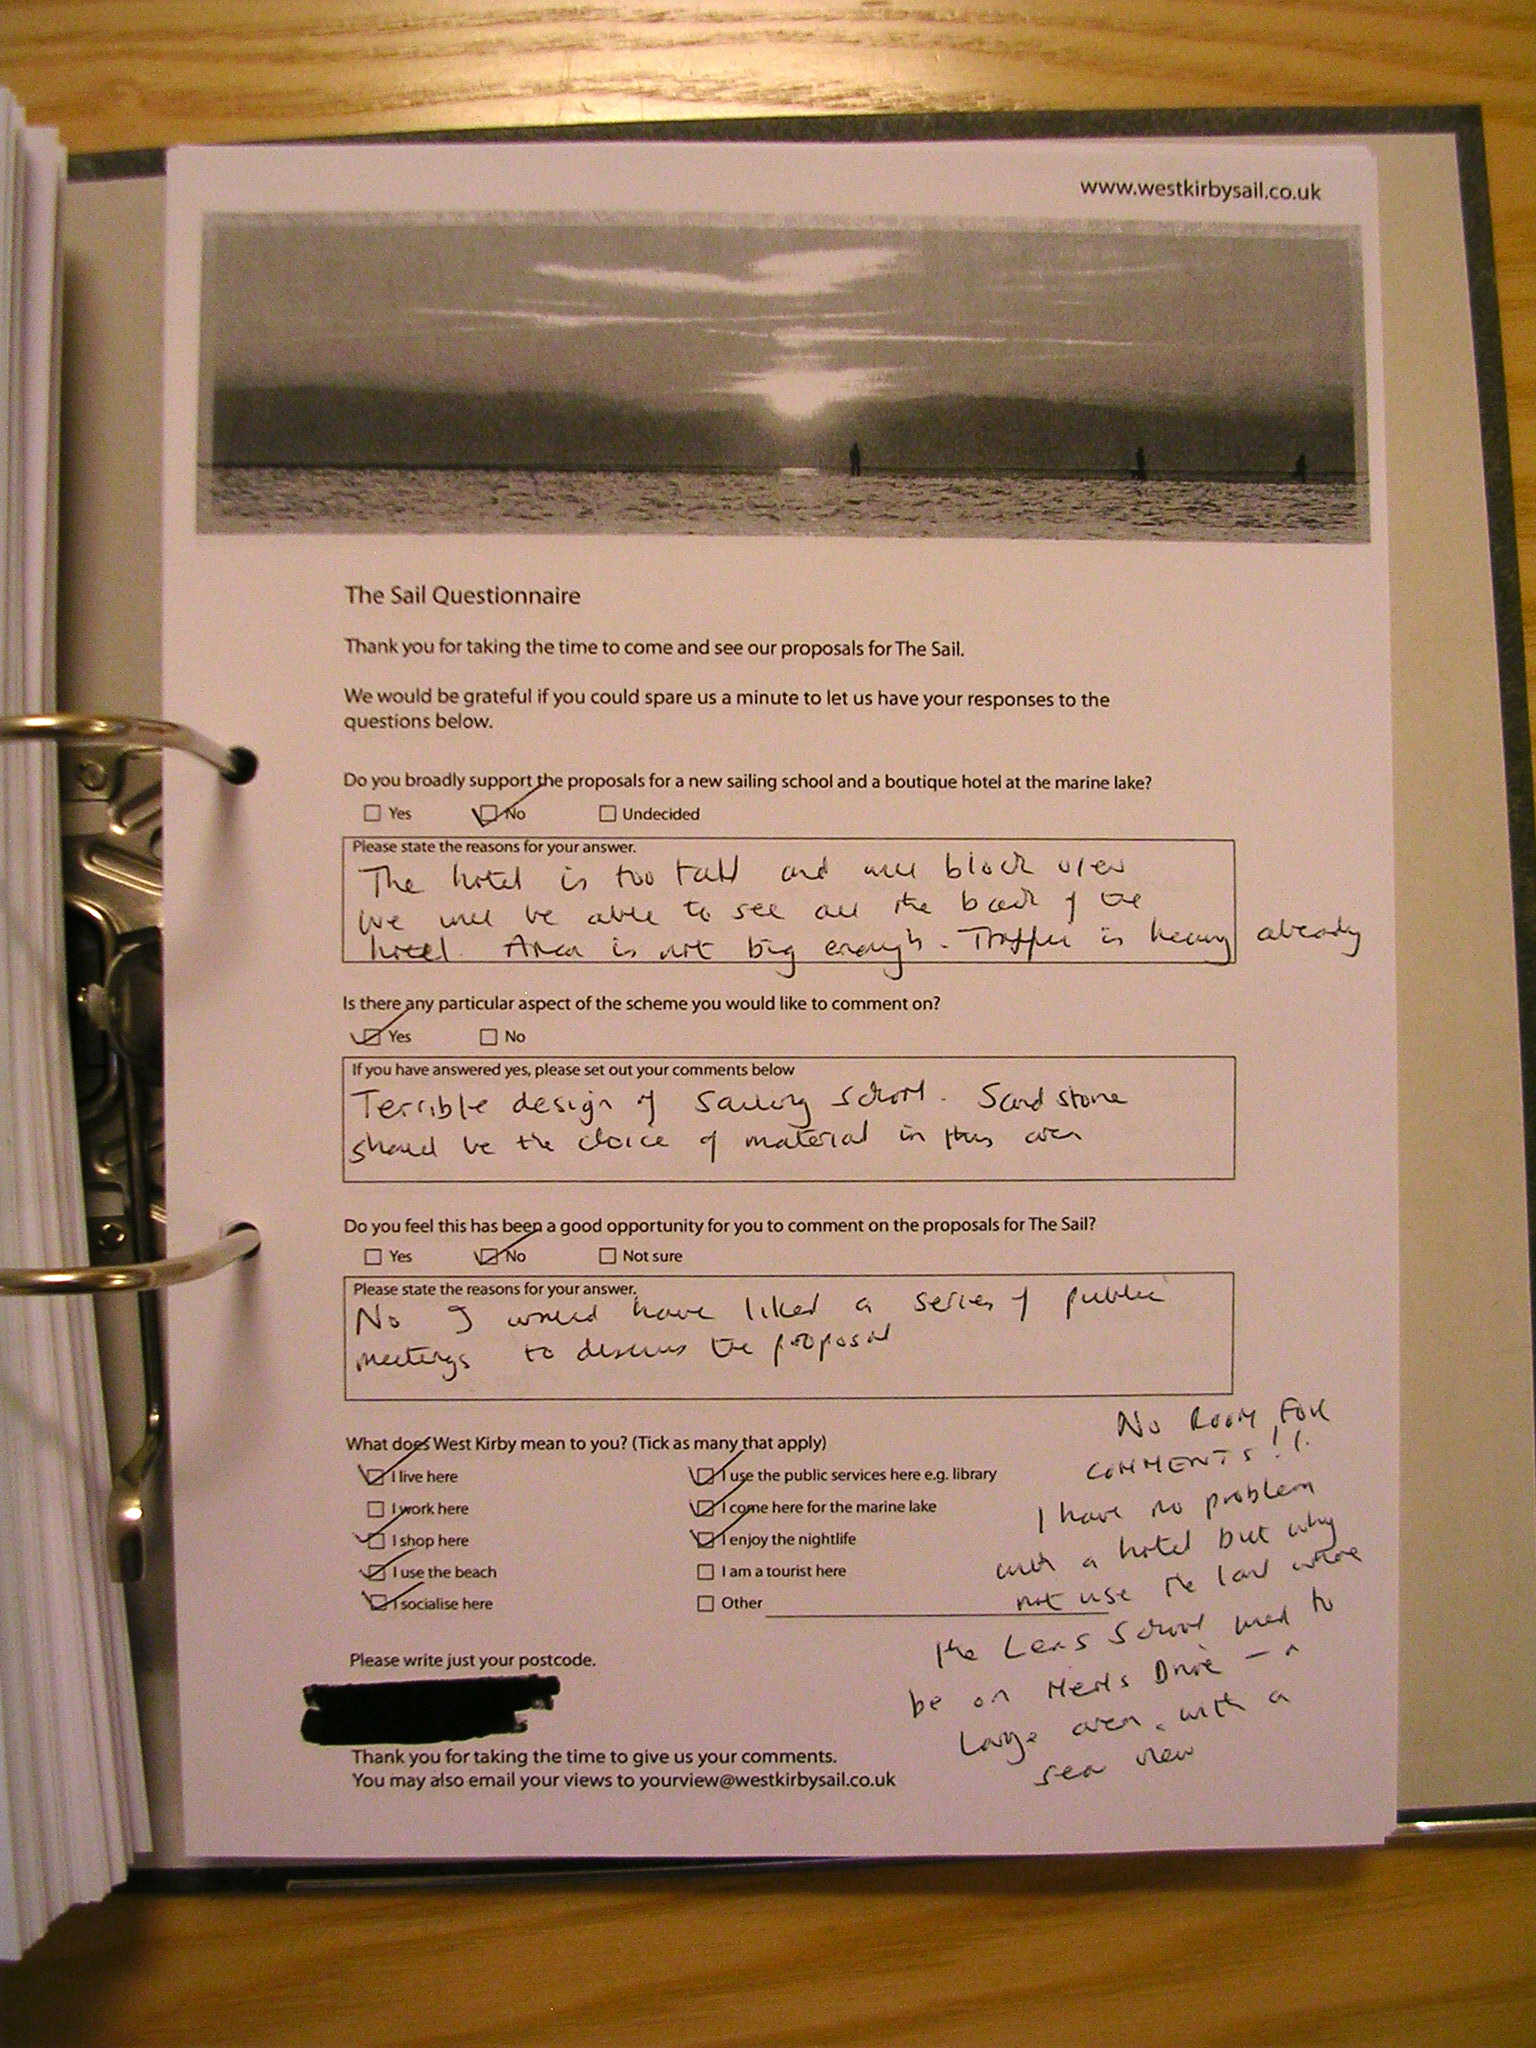 www.westkirbysail.co.uk
The Sail Questionnaire
Thank you for taking the time to come and see our proposals for The Sail.
We would be grateful if you could spare us a minute to let us have your responses to the
questions below.
Do you broadly support the proposals for a new sailing school and a boutique hotel at the marine lake?
Yes No Undecided
Please state the reasons for your answer.
The hotel is too tall and will block view
We will be able to see all the back of the
hotel. Area is not big enough. Traffic is heavy already
Is there any particular aspect of the scheme you would like to comment on?
Yes No
If you have answered yes, please set out your comments below
Terrible design of sailing school. Sandstone
should be the choice of material in this area
Do you feel this has been a good opportunity for you to comment on the proposals for The Sail?
Yes No Not sure
Please state the reasons for your answer.
No I would have liked a series of public
meetings to discuss the proposal
What does West Kirby mean to you? (Tick as many that apply)
I live here I use the public services here e.g. library
I work here I come here for the marine lake
I shop here I enjoy the nightlife
I use the beach I am a tourist here
I socialise here Other
NO ROOM FOR
COMMENTS!!
I have no problem
with a hotel but why
not use the land where
the School used to
be on Drive - a
large area with a
sea view
Please write just your postcode.
Thank you for taking the time to give us your comments.
You may also email your views to yourview@westkirbysail.co.uk